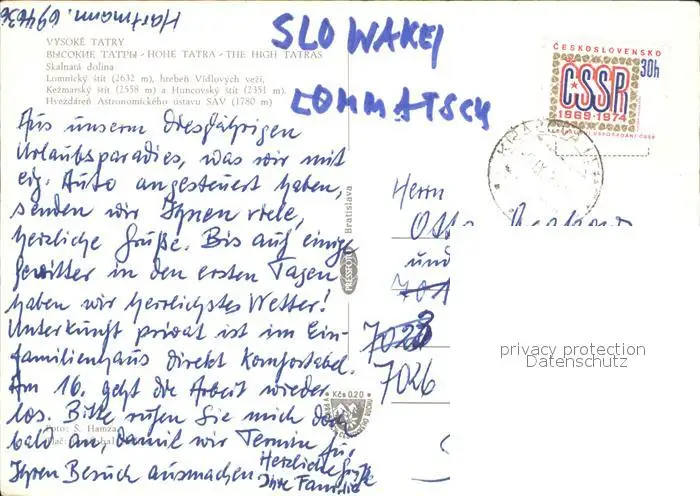 Hartmann. 694636
SLOWAKEI
LOMMATSCH
VYSOKÉ TATRY
ВЫСОКИЕ ТАТРЫ - HOHE TATRA - THE HIGH TATRAS
Skalnatá dolina
Lomnický štít (2632 m), hrebeň Vidlových veží,
Kežmarský štít (2558 m) a Huncovský štít (2351 m).
Hvezdáreň Astronomického ústavu SAV (1780 m)
Aus unserm diesjährigen
Urlaubsparadies, was wir mit
eig. Auto angesteuert haben,
senden wir Ihnen viele,
herzliche Grüße. Bis auf einige
Gewitter in den ersten Tagen
haben wir herrlichstes Wetter!
Unterkunft privat ist im Ein-
familienhaus direkt komfortabel.
Am 16. geht die Arbeit wieder
los. Bitte rufen Sie mich doch
bald an, damit wir Termin für
Ihren Besuch ausmachen
Herzliche Grüße
Ihre Familie
Foto: Š. Hamza
PRESSFOTO
Bratislava
Kčs 0,20
ČESKOSLOVENSKO
30h
ČSSR
1969-1974
Herrn
Otto
und
701
7023
7026
privacy protection
Datenschutz